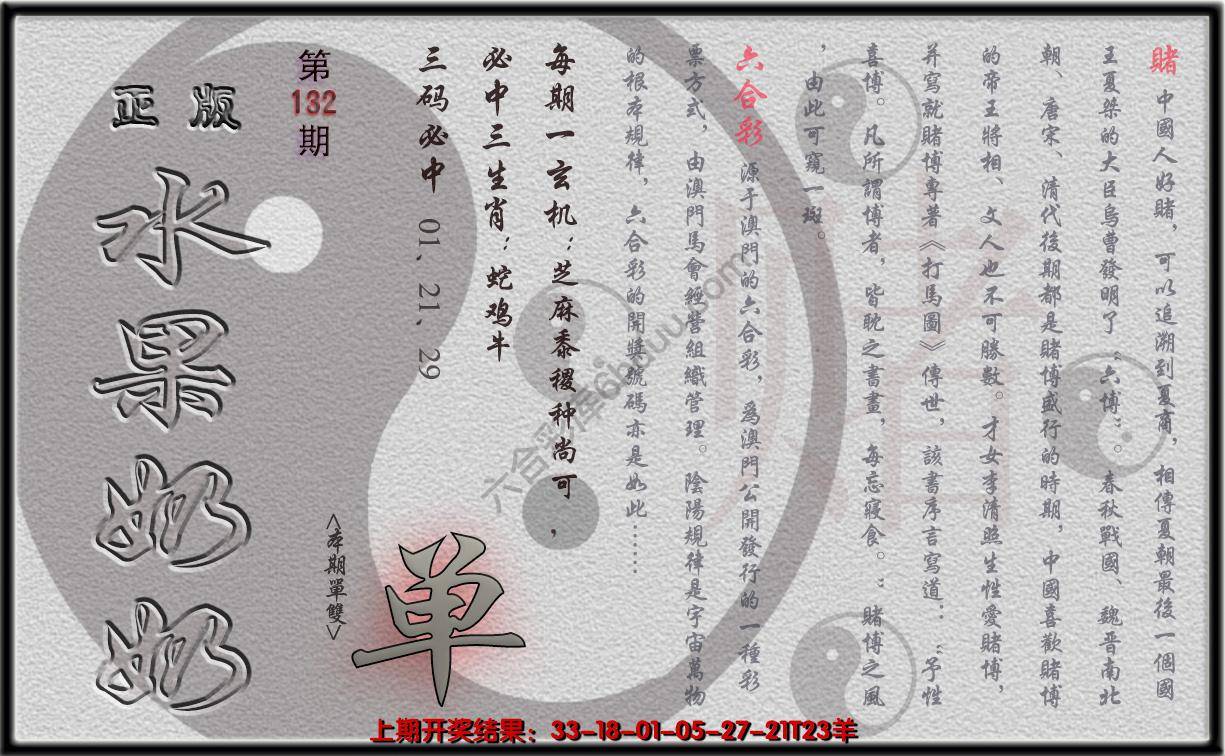 賭 中國人好賭，可以追溯到夏商，相傳夏朝最後一個國
王夏桀的大臣烏曹發明了“六博”。春秋戰國、魏晋南北
朝、唐宋、清代後期都是賭博盛行的時期，中國喜歡賭博
的帝王將相、文人也不可勝數。才女李清照生性愛賭博，
并寫就賭博專著《打馬圖》傳世，該書序言寫道：“予性
喜博。凡所謂博者，皆耽之書畫，每忘寢食。”賭博之風
，由此可窺一斑。
六合彩 源于澳門的六合彩，爲澳門公開發行的一種彩
票方式，由澳門馬會經營組織管理。陰陽規律是宇宙萬物
的根本規律，六合彩的開獎號碼亦是如此……
每期一玄机：芝麻黍稷种尚可，
必中三生肖：蛇鸡牛
三码必中 01、21、29
第132期
正版
水果奶奶
<本期單雙>
单
六合彩库6hduu.com
上期开奖结果：33-18-01-05-27-21T23羊